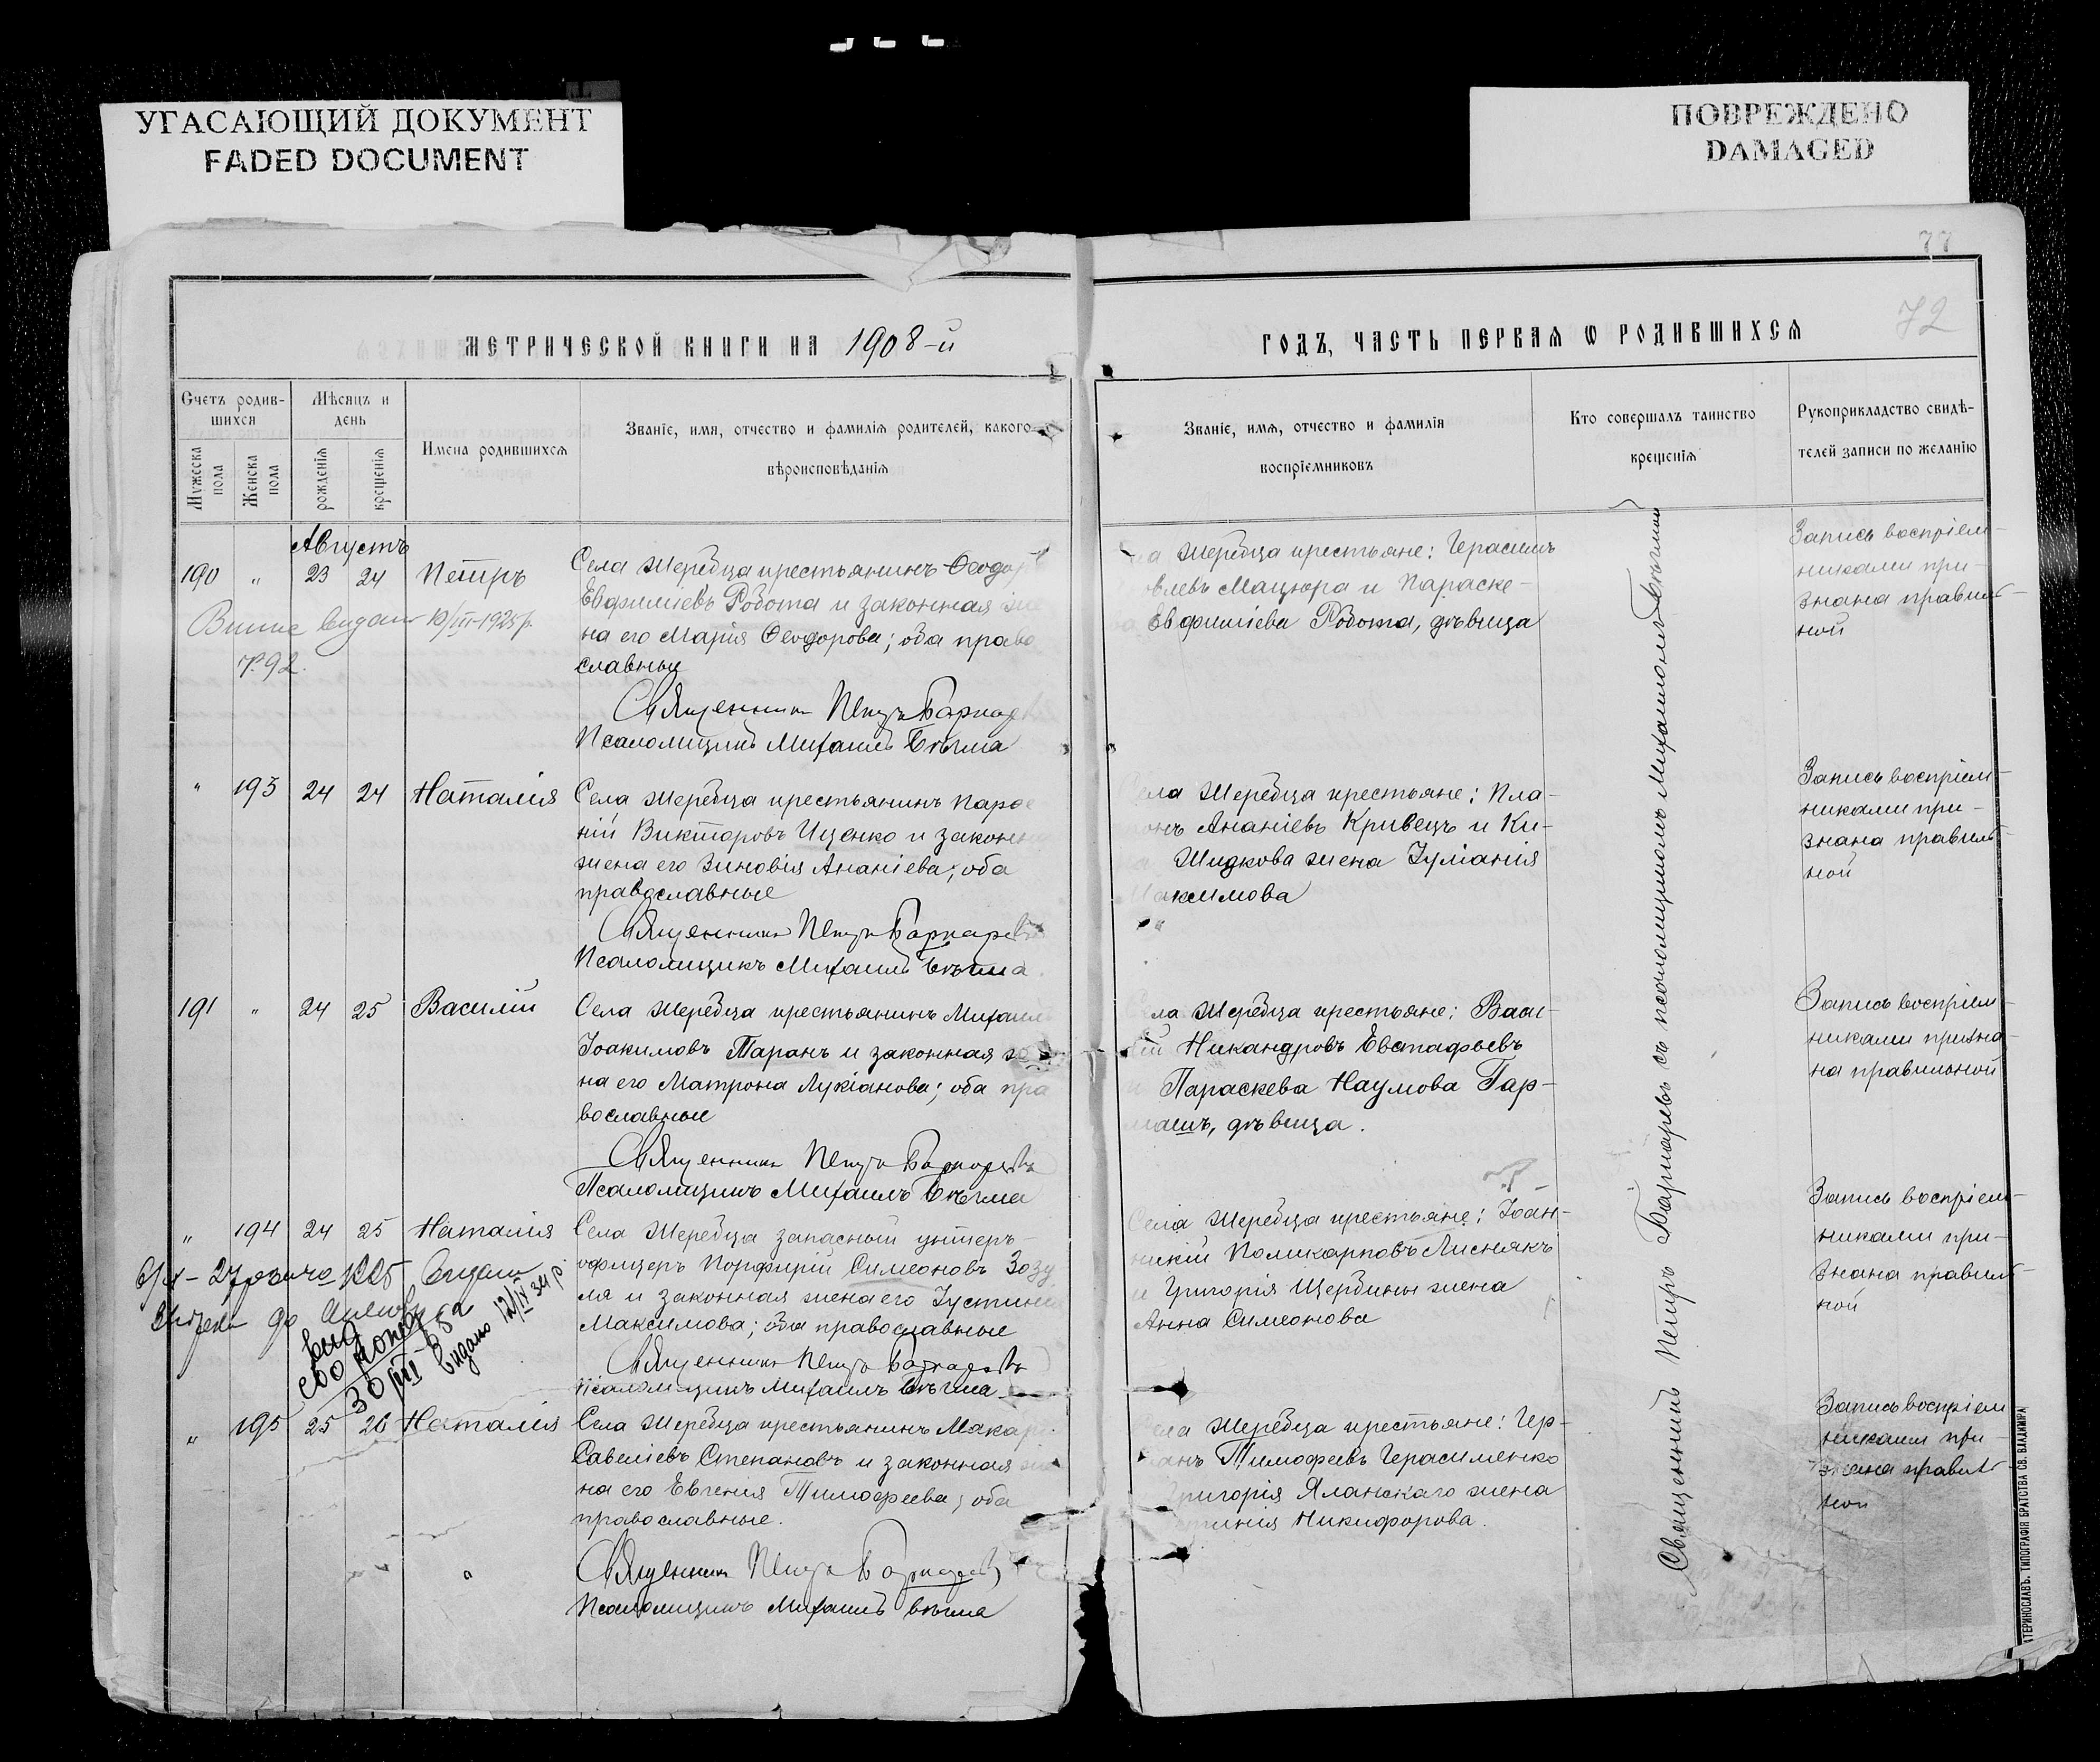 УГАСАЮЩИЙ ДОКУМЕНТ
FADED DOCUMENT
ПОВРЕЖДЕНО
DAMAGED
77
72
МЕТРИЧЕСКОЙ КНИГИ НА 1908-й
ГОДЪ, ЧАСТЬ ПЕРВАЯ Ѡ РОДИВШИХСЯ
Счетъ родив-
шихся
Мѣсяцъ и
день
Мужеска
пола
Женска
пола
рожденія
крещенія
Имена родившихся
Званіе, имя, отчество и фамилія родителей, какого
вѣроисповѣданія
Званіе, имя, отчество и фамилія
воспріемниковъ
Кто совершалъ таинство
крещенія
Рукоприкладство свидѣ-
телей записи по желанію
Августъ
190 " 23 24 Петръ
Села Жеребца крестьянинъ Ѳеодоръ
Евфиміевъ Робота и законная же
на его Марія Ѳеодорова; оба право
славные
Священникъ Петръ
Псаломщикъ Михаилъ
Жеребца крестьяне: Герасимъ
Мацюра и Параске-
Евфиміева Робота, дѣвица
Запись воспріем-
никами при-
знана правиль-
ной
10/III-1925р.
№ 92.
" 193 24 24 Наталія
Села Жеребца крестьянинъ Парѳе
ній Викторовъ Ищенко и законн
жена его Зиновія Ананіева; оба
православные
Священникъ Петръ
Псаломщикъ Михаилъ
Села Жеребца крестьяне: Пла-
онъ Ананіевъ Кривецъ и Ки-
Жидкова жена Іуліанія
Максимова
Запись воспріем-
никами при-
знана правиль-
ной
191 " 24 25 Василій
Села Жеребца крестьянинъ Михаил
Іоакимовъ Таранъ и законная же
на его Матрона Лукіанова; оба пра
вославные
Священникъ Петръ
Псаломщикъ Михаилъ
Села Жеребца крестьяне: Васи-
лій Никандровъ Евстафьевъ
и Параскева Наумова Гар-
машъ, дѣвица.
Запись воспріем-
никами призна-
на правильной
" 194 24 25 Наталія
Села Жеребца запасный унтеръ-
офицеръ Порфирій Симеоновъ Зозу
ля и законная жена его Іустинія
Максимова; оба православные
Священникъ Петръ
Псаломщикъ Михаилъ
Села Жеребца крестьяне: Іоан-
никій Поликарповъ Лиснякъ
и Григорія Щербины жена
Анна Симеонова
Запись воспріем-
никами при-
знана правиль-
ной
видано 12/IV 34 р
30/III
" 195 25 26 Наталія
Села Жеребца крестьянинъ Макарі
Савеліевъ Степановъ и законная же
на его Евгенія Тимоѳеева; оба
православные.
Священникъ Петръ
Псаломщикъ Михаилъ
Села Жеребца крестьяне: Гер-
манъ Тимоѳеевъ Герасименко
Григорія Яланскаго жена
Никифорова.
Запись воспріем
никами при-
знана правиль-
ной
Священникъ Петръ съ псаломщикомъ Михаиломъ
ТЕРИНОСЛАВЪ. ТИПОГРАФІЯ БРАТСТВА СВ. ВЛАДИМІРА